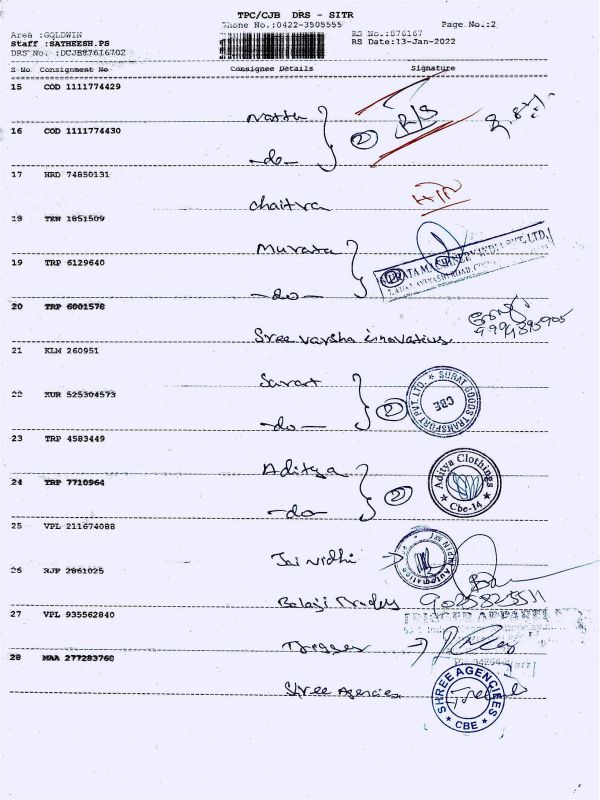 TPC/CJB DRS - SITR
Phone No.:0422-3505555 Page No.:2
Area :GOLDWIN RS No.:876167
Staff :SATHEESH.PS RS Date:13-Jan-2022
DRS No. :DCJB87616702
S No Consignment No Consignee Details Signature
15 COD 1111774429
Natta 2 R/S
16 COD 1111774430
-do-
17 HRD 74850131
Chaitra
18 TEN 1851509
Murata
19 TRP 6129640
-do-
20 TRP 6001578
Sree varsha innovatius
21 KLM 260951
Surat 2 SURAT GOODS TRANSPORT PVT. LTD. CBE
22 KUR 525304573
-do-
23 TRP 4583449
Aditya 2 Aditya Clothings Cbe-14
24 TRP 7710964
-do-
25 VPL 211674088
Jai Nidhi
26 RJP 2861025
Balaji 9025825511
27 VPL 935562840
Trigger
28 MAA 277283760
Shree Agencies SHREE AGENCIEES CBE